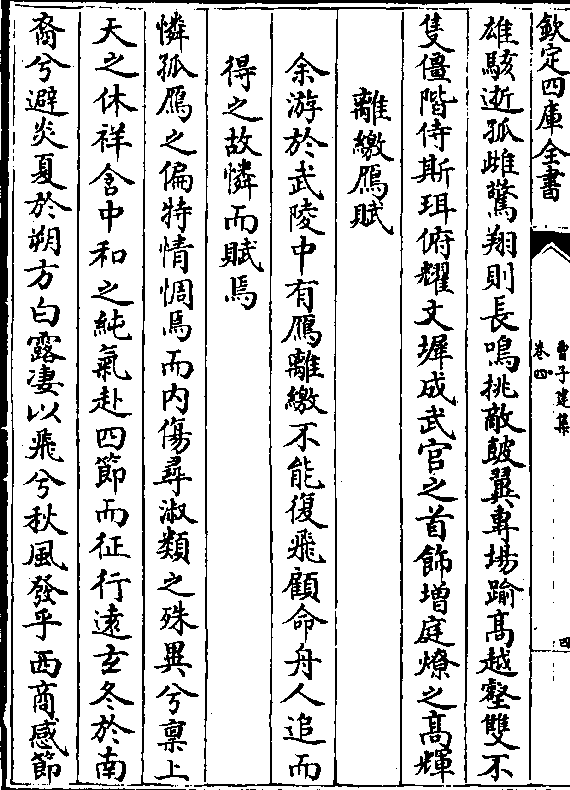 欽定四庫全書
曹子建集
卷四
四
雄駭逝孤雌驚翔則長鳴挑敵鼓翼専場踰髙越壑雙不
隻僵階侍斯珥俯耀文墀成武官之首飾増庭燎之髙輝
離繳鴈賦
余游於武陵中有鴈離繳不能復飛顧命舟人追而
得之故憐而賦焉
憐孤鴈之偏特情惆焉而内傷尋淑類之殊異兮禀上
天之休祥含中和之純氣赴四節而征行逺玄冬於南
裔兮避炎夏於朔方白露凄以飛兮秋風發乎西商感節